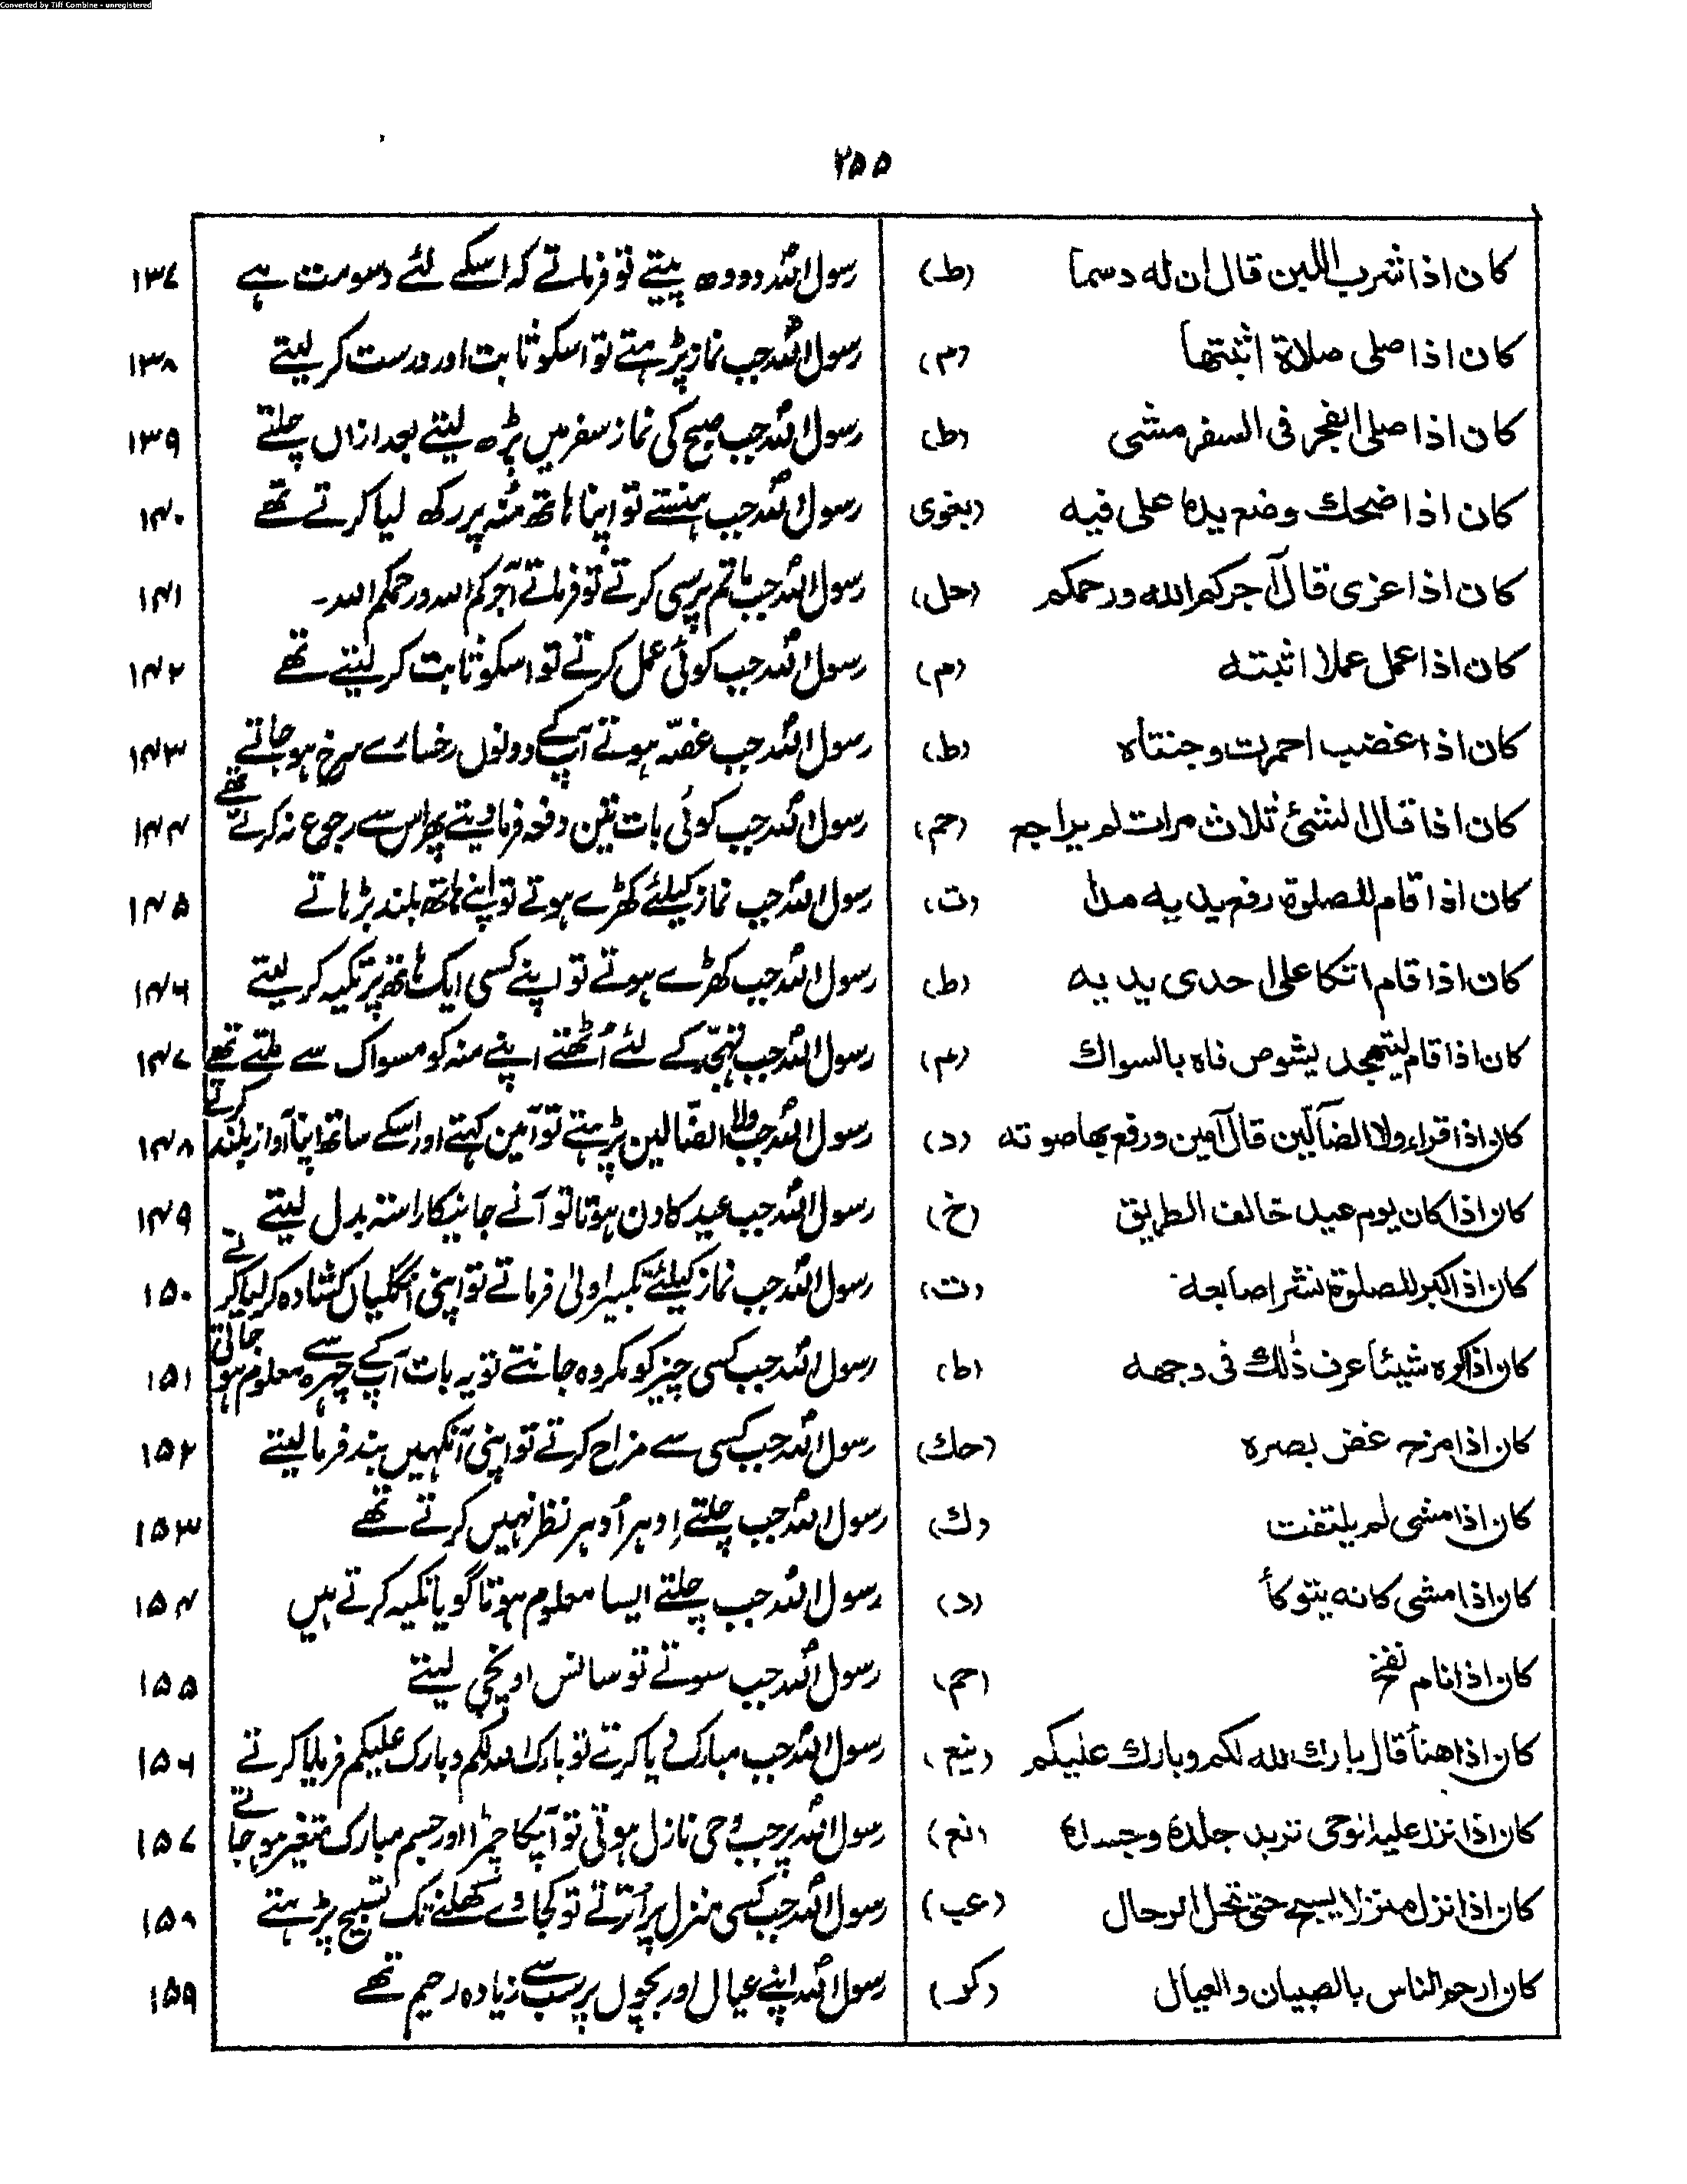 Converted by Tiff Combine - unregistered
۲۵۵
كان اذا شرب اللبن قال ان له دسما (ط) رسول اللہ دودھ پیتے تو فرماتے کہ اسکے لئے دسومت ہے ۱۳۷
كان اذا صلى صلاة اثبتها (م) رسول اللہ جب نماز پڑہتے تو اسکو ثابت اور درست کر لیتے ۱۳۸
كان اذا صلى الفجر فى السفر مشى (ط) رسول اللہ جب صبح کی نماز سفر میں پڑھ لیتے بعد ازاں چلتے ۱۳۹
كان اذا ضحك وضع يده على فيه (بغوی رسول اللہ جب ہنستے تو اپنا ہاتھ مُنہ پر رکھ لیا کرتے تھے ۱۴۰
كان اذا عزى قال آجركم الله ورحمكم (حل) رسول اللہ جب ماتم پرسی کرتے تو فرماتے آجرکم اللہ ورحمکم اللہ۔ ۱۴۱
كان اذا عمل عملا اثبته (م) رسول اللہ جب کوئی عمل کرتے تو اسکو ثابت کر لیتے تھے ۱۴۲
كان اذا غضب احمرت وجنتاه (ط) رسول اللہ جب غصّہ ہوتے آپ کے دونوں رخسارے سرخ ہو جاتے تھے ۱۴۳
كان اذا قال الشئ ثلاث مرات لم يراجع (حم) رسول اللہ جب کوئی بات تین دفعہ فرما دیتے پھر اس سے رجوع نہ کرتے ۱۴۴
كان اذا قام للصلوة رفع يديه مدا (ت) رسول اللہ جب نماز کیلئے کھڑے ہوتے تو اپنے ہاتھ بلند بڑہاتے ۱۴۵
كان اذا قام اتكا على احدى يديه (ط) رسول اللہ جب کھڑے ہوتے تو اپنے کسی ایک ہاتھ پر تکیہ کر لیتے ۱۴۶
كان اذا قام ليتهجد يشوص فاه بالسواك (م) رسول اللہ جب تہجّد کے لئے اُٹھتے اپنے منہ کو مسواک سے ملتے تھے ۱۴۷
كان اذا قراء ولا الضآلّين قال آمين ورفع بها صوته (د) رسول اللہ جب ولا الضالین پڑہتے تو آمین کہتے اور اسکے ساتھ اپنا آواز بلند کرتے ۱۴۸
كان اذا كان يوم عيد خالف الطريق (خ) رسول اللہ جب عید کا دن ہوتا تو آنے جانیکا راستہ بدل لیتے ۱۴۹
كان اذا كبر للصلوة نشر اصابعه (ت) رسول اللہ جب نماز کیلئے تکبیر اولیٰ فرماتے تو اپنی انگلیاں کشادہ کر لیا کرتے ۱۵۰
كان اذا كره شيئا عرف ذٰلك فى وجهه (ط) رسول اللہ جب کسی چیز کو مکروہ جانتے تو یہ بات آپ کے چہرہ سے معلوم ہو جاتی ۱۵۱
كان اذا مزح غض بصره (حك) رسول اللہ جب کسی سے مزاح کرتے تو اپنی آنکہیں بند فرما لیتے ۱۵۲
كان اذا مشى لم يلتفت (ك) رسول اللہ جب چلتے اِدہر اُدہر نظر نہیں کرتے تھے ۱۵۳
كان اذا مشى كانه يتوكأ (د) رسول اللہ جب چلتے ایسا معلوم ہوتا گویا تکیہ کرتے ہیں ۱۵۴
كان اذا نام نفخ (حم) رسول اللہ جب سوتے تو سانس اونچی لیتے ۱۵۵
كان اذا هنأ قال بارك الله لكم وبارك عليكم رسول اللہ جب مبارک کرتے تو بارک اللہ لکم وبارک علیکم فرمایا کرتے ۱۵۶
كان اذا نزل عليه الوحى تربد جلده وجسده رسول اللہ پر جب وحی نازل ہوتی تو آپکا چمڑا اور جسم مبارک متغیر ہو جاتے ۱۵۷
كان اذا نزل منزلا يسبح حتى تحل الرحال (عب) رسول اللہ جب کسی منزل پر اُترتے تو کجاوے کھلنے تک تسبیح پڑہتے ۱۵۸
كان ارحم الناس بالصبيان والعيال (كر) رسول اللہ اپنے عیال اور بچوں پر سب سے زیادہ رحیم تھے ۱۵۹